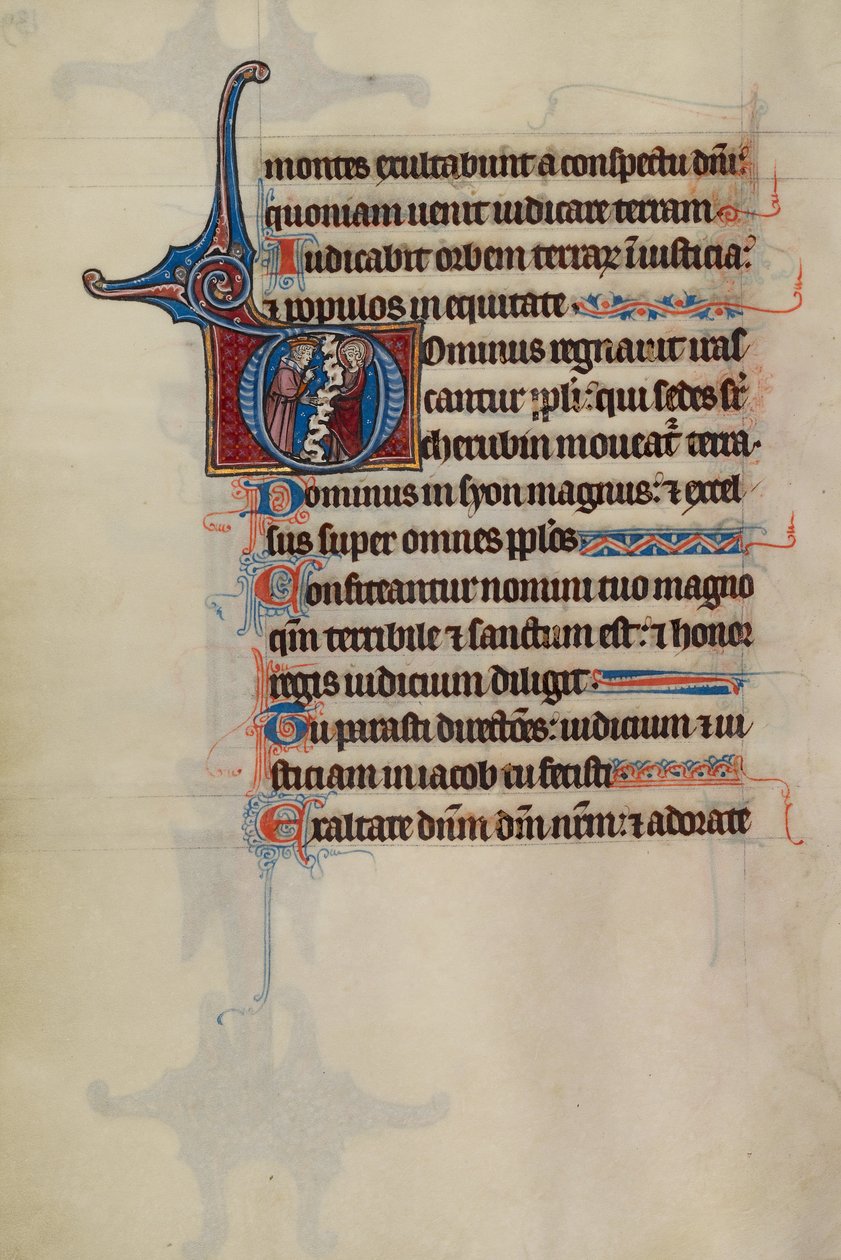 montes exultabunt a conspectu dñi:
quoniam uenit iudicare terram
Iudicabit orbem terraꝝ ĩ iusticia:
⁊ populos in equitate.
Dominus regnauit iras
cantur ppl̃i: qui sedes sr̃
cherubin moueat᷑ terra.
Dominus in syon magnus: ⁊ excel
sus super omnes ppl̃os
Confiteantur nomini tuo magno
qm̃ terribile ⁊ sanctum est: ⁊ honor
regis iudicium diligit.
Tu parasti directões: iudicium ⁊ iu
sticiam in iacob tu fecisti
Exaltate dñm dm̃ nr̃m: ⁊ adorate